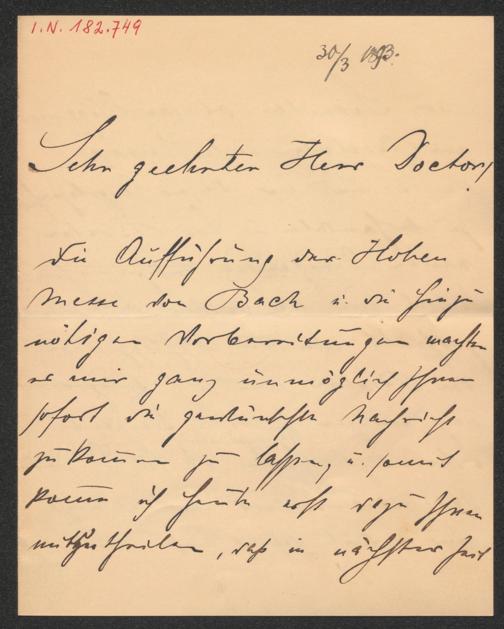 I.N. 182.749
30/3 1893.
Sehr geehrter Herr Doctor!
Die Aufführung der Hohen
Messe von Bach u. die hinzu
nötigen Vorbereitungen machten
es mir ganz unmöglich Ihnen
sofort die gewünschte Nachricht
zukommen zu lassen, u. somit
komme ich heute erst dazu Ihnen
mitzutheilen, daß in nächster Zeit